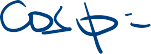 cos φ =